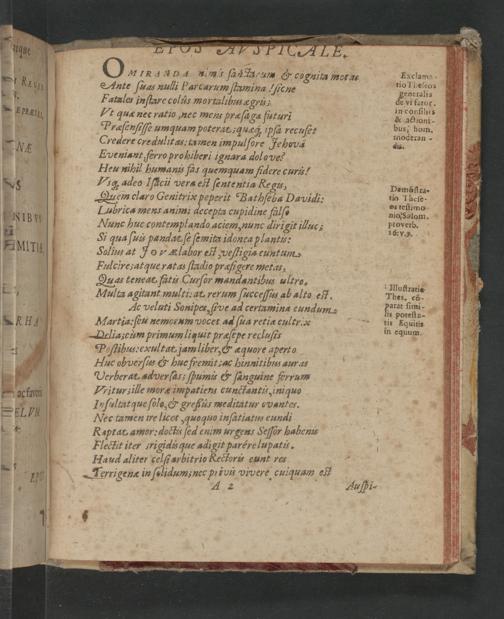 EPOS AVSPICALE.
O MIRANDA nimis sanctarum & cognita metae
Ante suas nulli Parcarum stamina! siene
Fatales instare colûs mortalibus aegris;
Vt quae nec ratio, nec mens praesaga futuri
Praesensisse umquam poterat; quaeq, ipsa recuset
Credere credulitas; tamen impulsore Jehova
Eveniant, ferro prohiberi ignara dolove?
Heu nihil humanis fas quemquam fidere curis!
Vsq, adeo Isacii vera est sententia Regis,
Quem claro Genitrix peperit Bathseba Davidi:
Lubrica mens animi decepta cupidine falso
Nunc huc contemplando aciem, nunc dirigit illuc;
Si qua suis pandat se semita idonea plantis:
Solius at JOVAE labor est, vestigia euntum
Fulcire; atque ratas stadio praefigere metas,
Quas teneat fatis Cursor mandantibus ultro.
Multa agitant multi: at rerum successus ab alto est.
Ac veluti Sonipes, sive ad certamina eundum
Martia: seu nemorum vocet ad sua retia cultrix
Delia; cùm primum liquit praesepe reclusis
Postibus: exultat jam liber, & aequore aperto
Huc obversus & huc fremit; ac hinnitibus auras
Verberat adversas; spumis & sanguine ferrum
Vritur; ille morae impatiens cunctantis, iniquo
Insultatque solo, & gressus meditatur ovantes.
Nec tamen ire licet, quoquo insatiatus eundi
Raptat amor: doctis sed enim urgens Sessor habenis
Flectit iter; rigidisque adigit parére lupatis.
Haud aliter celsi arbitrio Rectoris eunt res
Terrigenae in solidum; nec privis vivere cuiquam est
A 2 Auspi-
Exclama-
tio Theseos
generalis
de vi fator.
in consiliis
& actioni-
bus, hom.
moderan-
dis.
Demōstra-
tio These-
os testimo-
nio, Salom.
proverb.
16: v. 9.
Illustratio
Thes. cō-
parat simi-
lis potesta-
tis Equitis
in equum.